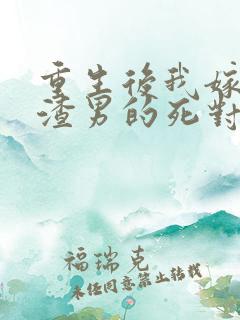 重生後我嫁
渣男的死對
福瑞克
未經同意禁止轉載